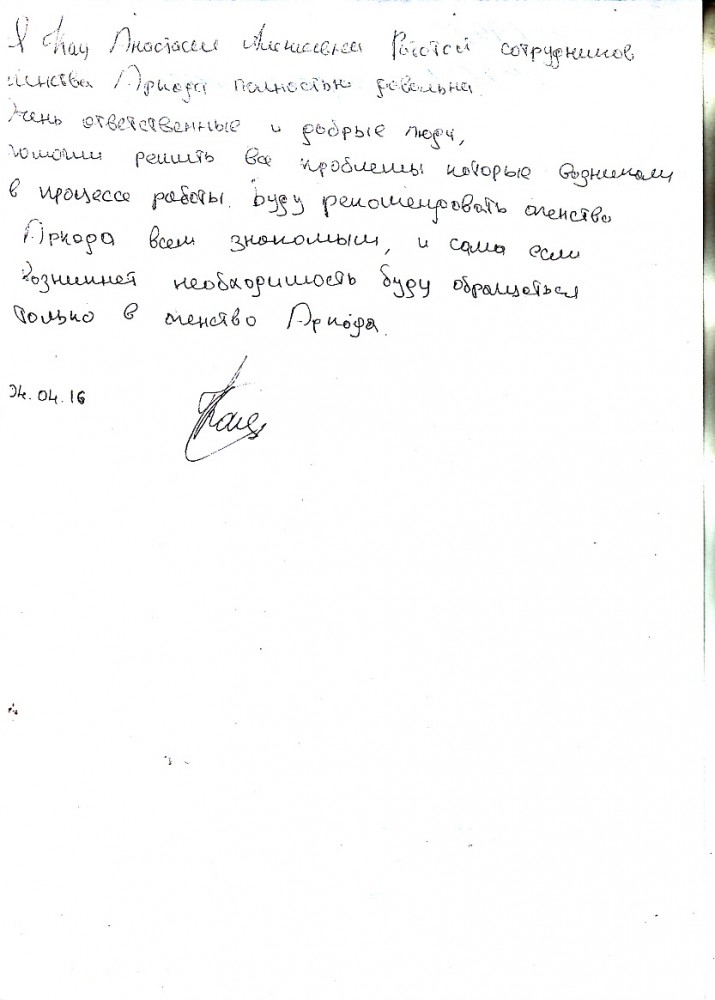 Я Кац Анастасия Алексеевна Работой сотрудников
агенства Аркада полностью довольна.
Очень ответственные и добрые люди,
помогли решить все проблемы которые возникали
в процессе работы. Буду рекомендовать агенство
Аркада всем знакомым, и сама если
возникнет необходимость буду обращаться
только в агенство Аркада.
24.04.16